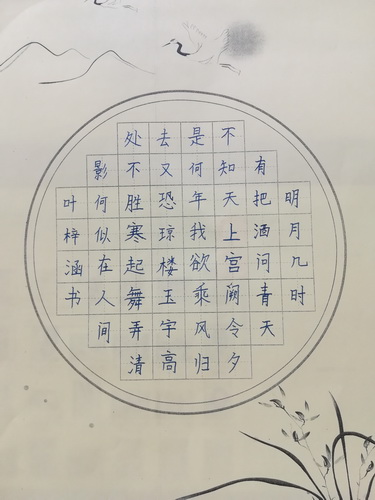 明月几时
有把酒问青天
不知天上宫阙令夕
是何年我欲乘风归
去又恐琼楼玉宇高
处不胜寒起舞弄清
影何似在人间
叶梓涵书